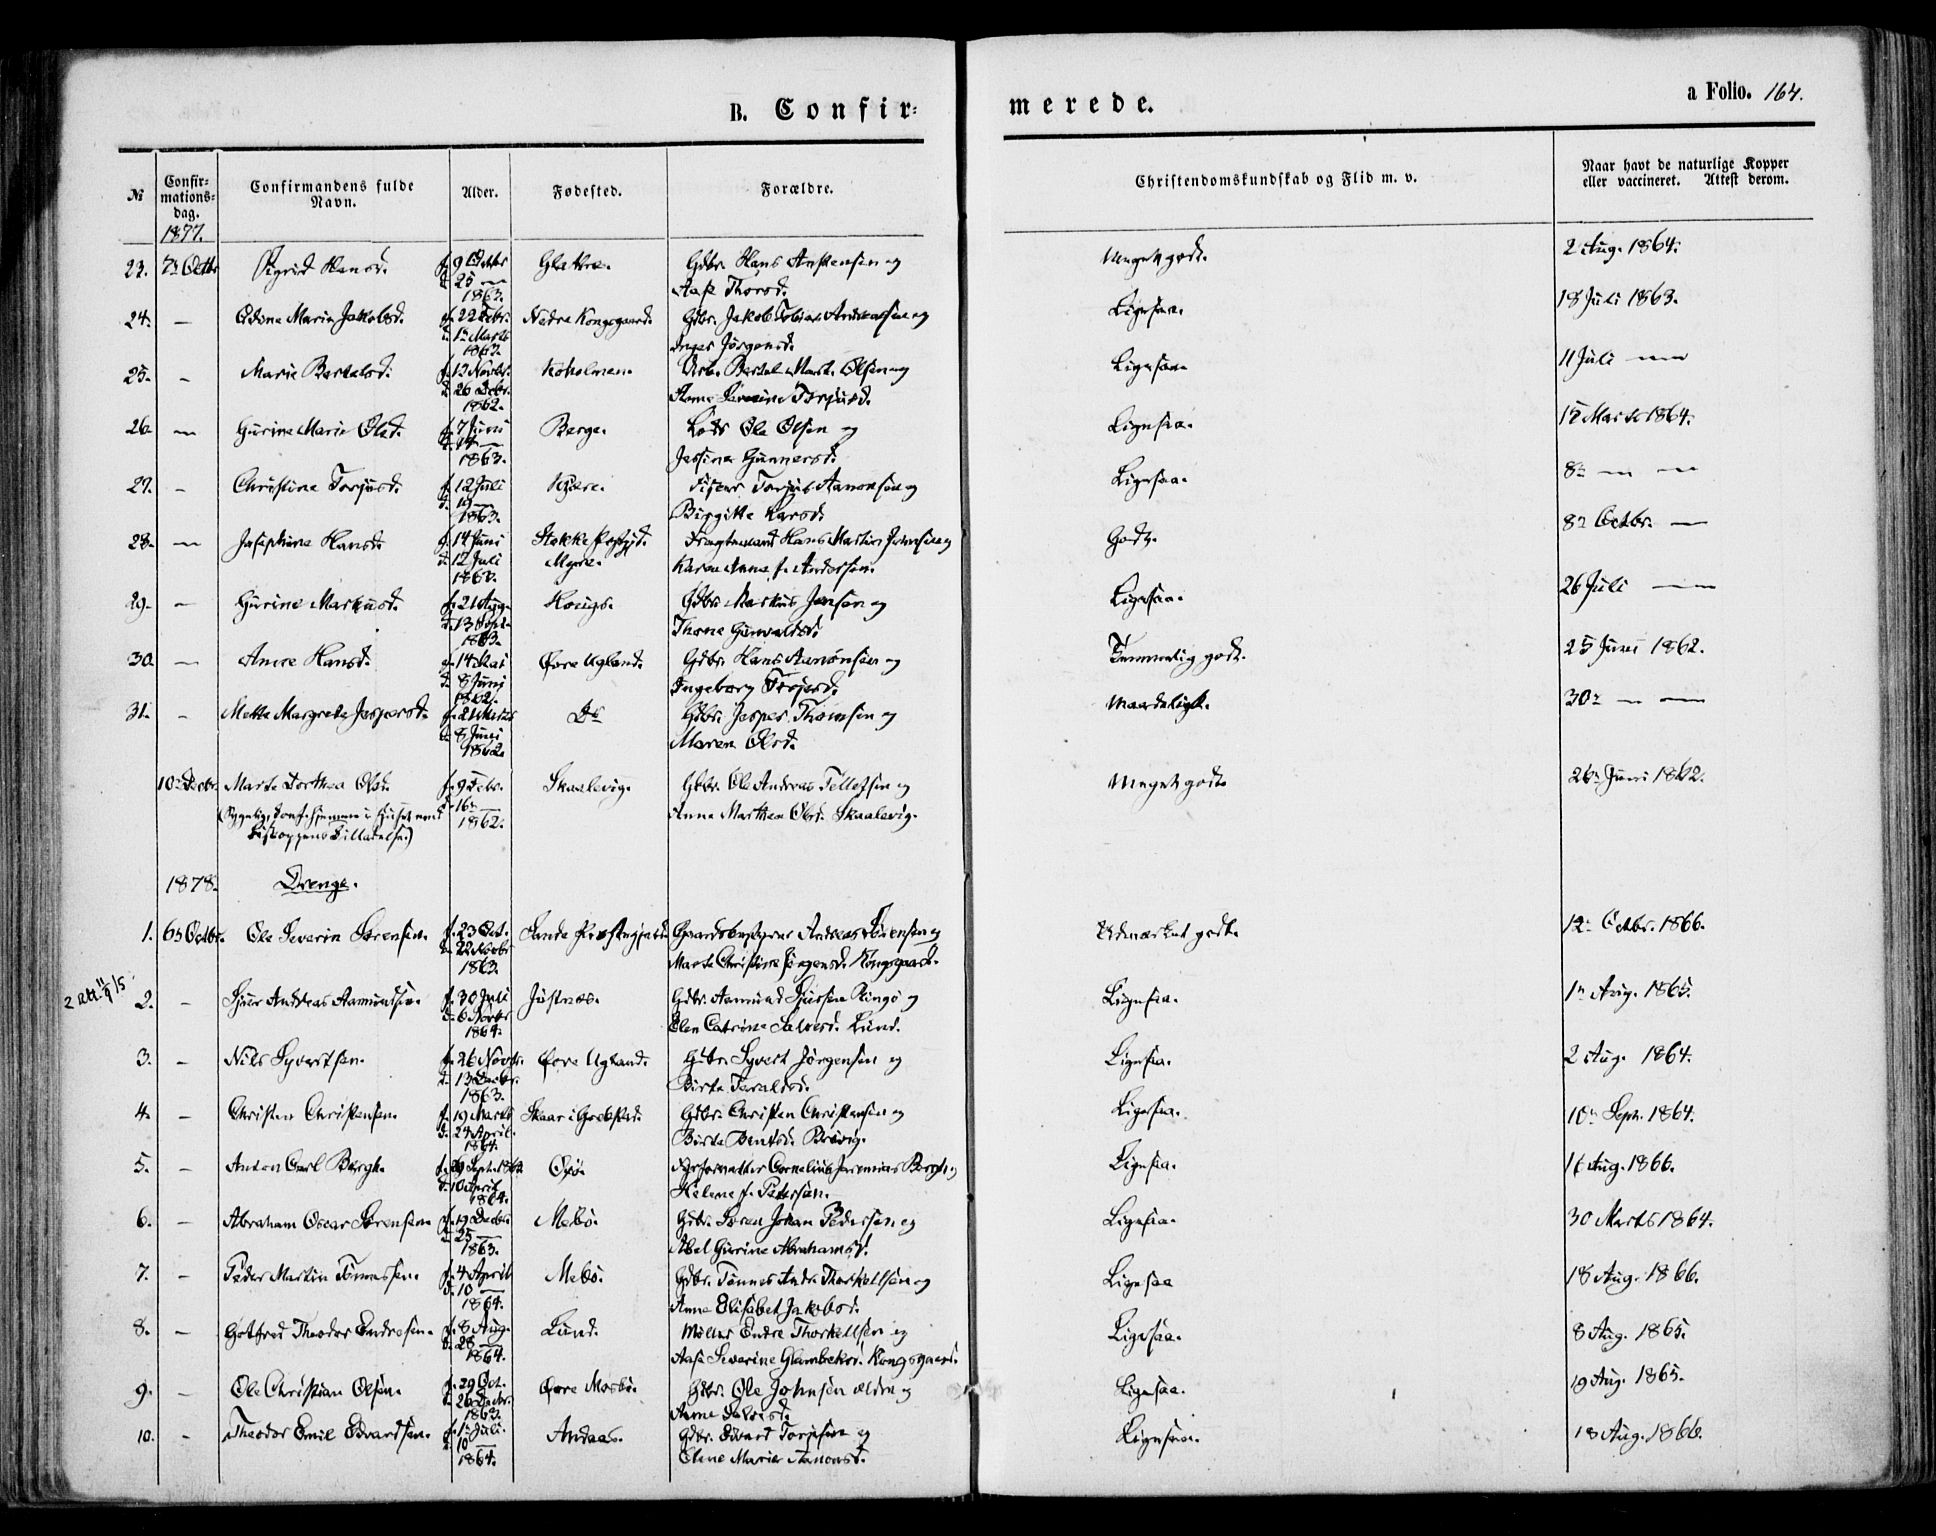 B. Confir=
merede.
a Folio. 164.
№
Confir=
mations=
dag.
Confirmandens fulde
Navn.
Alder.
Fødested.
Forældre.
Christendomskundskab og Flid m. v.
Naar havt de naturlige Kopper
eller vaccineret. Attest derom.
1877.
23. 7n Octbr Sigrid Hansd. f. 9 Octbr Glattre. Gdbr. Hans Anstensen og Meget godt. 2 Aug. 1864.
d. 25 — Aase Thorsd.
1863.
24. — Marie Jakobsd. f. 22 Febr. Nedre Kongsgaard. Gdbr. Jakob Tobias Andreassen og Ligesaa. 18 Juli 1863.
d. 1n Marts Inger Jørgensd.
1863.
25. — Marie Bertelsd. f. 13 Novbr. Kokolmen. Bertel Mart. Olsen og Ligesaa. 11 Juli —
d. 26 Decbr. Anne Severine Torjusd.
1862.
26. — Gurine Marie Olsd. f. 7 Juni Berge. Lods Ole Olsen og Ligesaa. Marts 1864.
d. 14 — Jessine Gunnersd.
1863.
27. — Christine Torjusd. f. 12 Juli Kjære. Fisker Torjus Aanonsen og Ligesaa. 8n — —
d. 19 — Birgitte Larsd.
1863.
28. — Josephine Hansd. f. 14 Juni Hans Martin Johnsen og Godt. 8n Octbr. —
d. 12 Juli Myre. Karen Anna f. Andersen.
1863.
29. — Gurine Markusd. f. 21 Aug. Houge. Gdbr. Markus Jensen og Ligesaa. 26 Juli —
d. 13 Sept. Thone Gunvaldsd.
1863.
30. — Anne Hansd. f. 14 Mai Øvre Ugland. Gdbr. Hans Aanonsen og Temmelig godt. 25 Juni 1862.
d. 8 Juni Ingeborg Torjusd.
1862.
31. — Mette Margrete Jespersd. f. 21 Marts Do Gdbr. Jesper Thomsen og Maadeligt. 30n — —
d. 8 Juni Maren Olsd.
1862.
10n Decbr. Marte Dorthea Olsd. f. 9 Febr. Skaalevig. Gdbr. Ole Andreas Tellefsen og Meget godt 26n Juni 1862.
(Sygelig, Conf. hjemme i Huset med d. 16n — Anne Marthea Olsd. Skaalevig.
Biskoppens Tilladelse.) 1862.
1878. Drenge.
1. 6n Octbr. Ole Severin Sørensen. f. 23 Oct. Sande Præstegjeld. Gaardsbestyrer Andreas Sørensen og Udmærket godt. 12n Octbr. 1866.
d. 22 Novbr Marte Christine Jørgensd. Kongsgaard.
1863.
2. — Sjur Andreas Aamundsen. f. 30 Juli Justnes. Gdbr. Aamund Sjursen Ringø og Ligesaa. 1n Aug. 1865.
d. 6 Novbr Elen Catrine Salvesd. Lund.
1864.
3. — Nils Syvertsen. f. 26 Novbr. Øvre Ugland. Gdbr. Syvert Jørgensen og Ligesaa. 2 Aug. 1864.
d. 13 Decbr. Birte Taraldsd.
1863.
4. — Christen Christensen. f. 19 Marts Skaar i Grebsted. Gdbr. Christen Christensen og Ligesaa. 10n Sept. 1864.
d. 24 April. Birte Bentsd. Brøvig.
1864.
5. — Anton Carl Bergh. f. 29 Sept. 1863 Oxø. Cornelius Jeremias Bergh og Ligesaa. 16 Aug. 1866.
d. 10 April Helene f. Petersen.
1864.
6. — Abraham Oscar Sørensen. f. 19 Decbr. Mebø. Gdbr. Søren Johan Pedersen og Ligesaa. 30 Marts 1864.
d. 25 — Abel Gurine Abrahamsd.
1863.
7. — Peder Martin Tønnessen. f. 4 April Mebø. Gdbr. Tønnes Andr. Thorkellsen og Ligesaa 18 Aug. 1866.
d. 10 — Anne Elisabet Jakobsd.
1864.
8. — Gotfred Theodor Endresen. f. 8 Aug. Lund. Møller Endre Thorkellsen og Ligesaa. 8 Aug. 1865.
d. 28 — Aase Severine Glambeksd. Kongsgaard.
1864.
9. — Ole Christian Olsen. f. 29 Oct. Øvre Mosbø. Gdbr. Ole Johnsen ældre og Ligesaa. 19 Aug. 1865.
d. 26 Decbr. Anne Salvesd.
1863.
10. — Theodor Emil Edvardsen. f. 1n Juli. Andaas. Gdbr. Edvard Torjusen og Ligesaa. 18 Aug. 1866.
d. 10 — Elene Marie Aanonsd.
1864.